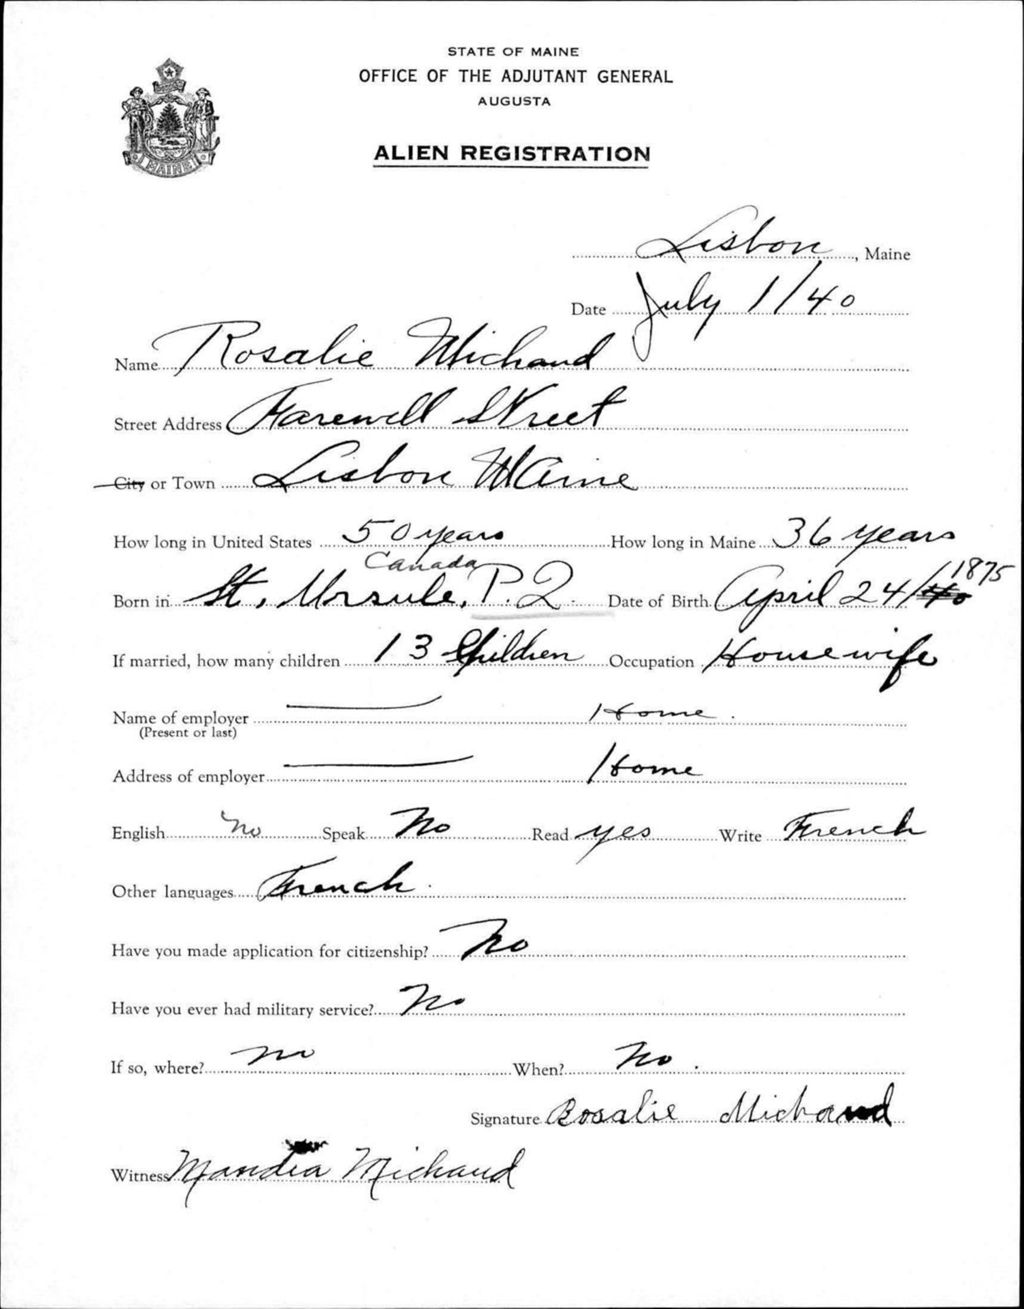 STATE OF MAINE
OFFICE OF THE ADJUTANT GENERAL
AUGUSTA
ALIEN REGISTRATION
MAINE
Lisbon, Maine
Date July 1/40
Name Rosalie Michaud
Street Address Farewell Street
City or Town Lisbon Maine
How long in United States 50 years How long in Maine 36 years
Canada 1875
Born in St. Ursule, P.Q. Date of Birth April 24/40
If married, how many children 13 Children Occupation Housewife
Name of employer Home.
(Present or last)
Address of employer Home
English No Speak No Read yes Write French
Other languages French.
Have you made application for citizenship? No
Have you ever had military service? No
If so, where? no When? No.
Signature Rosalie Michaud
Witness Michaud